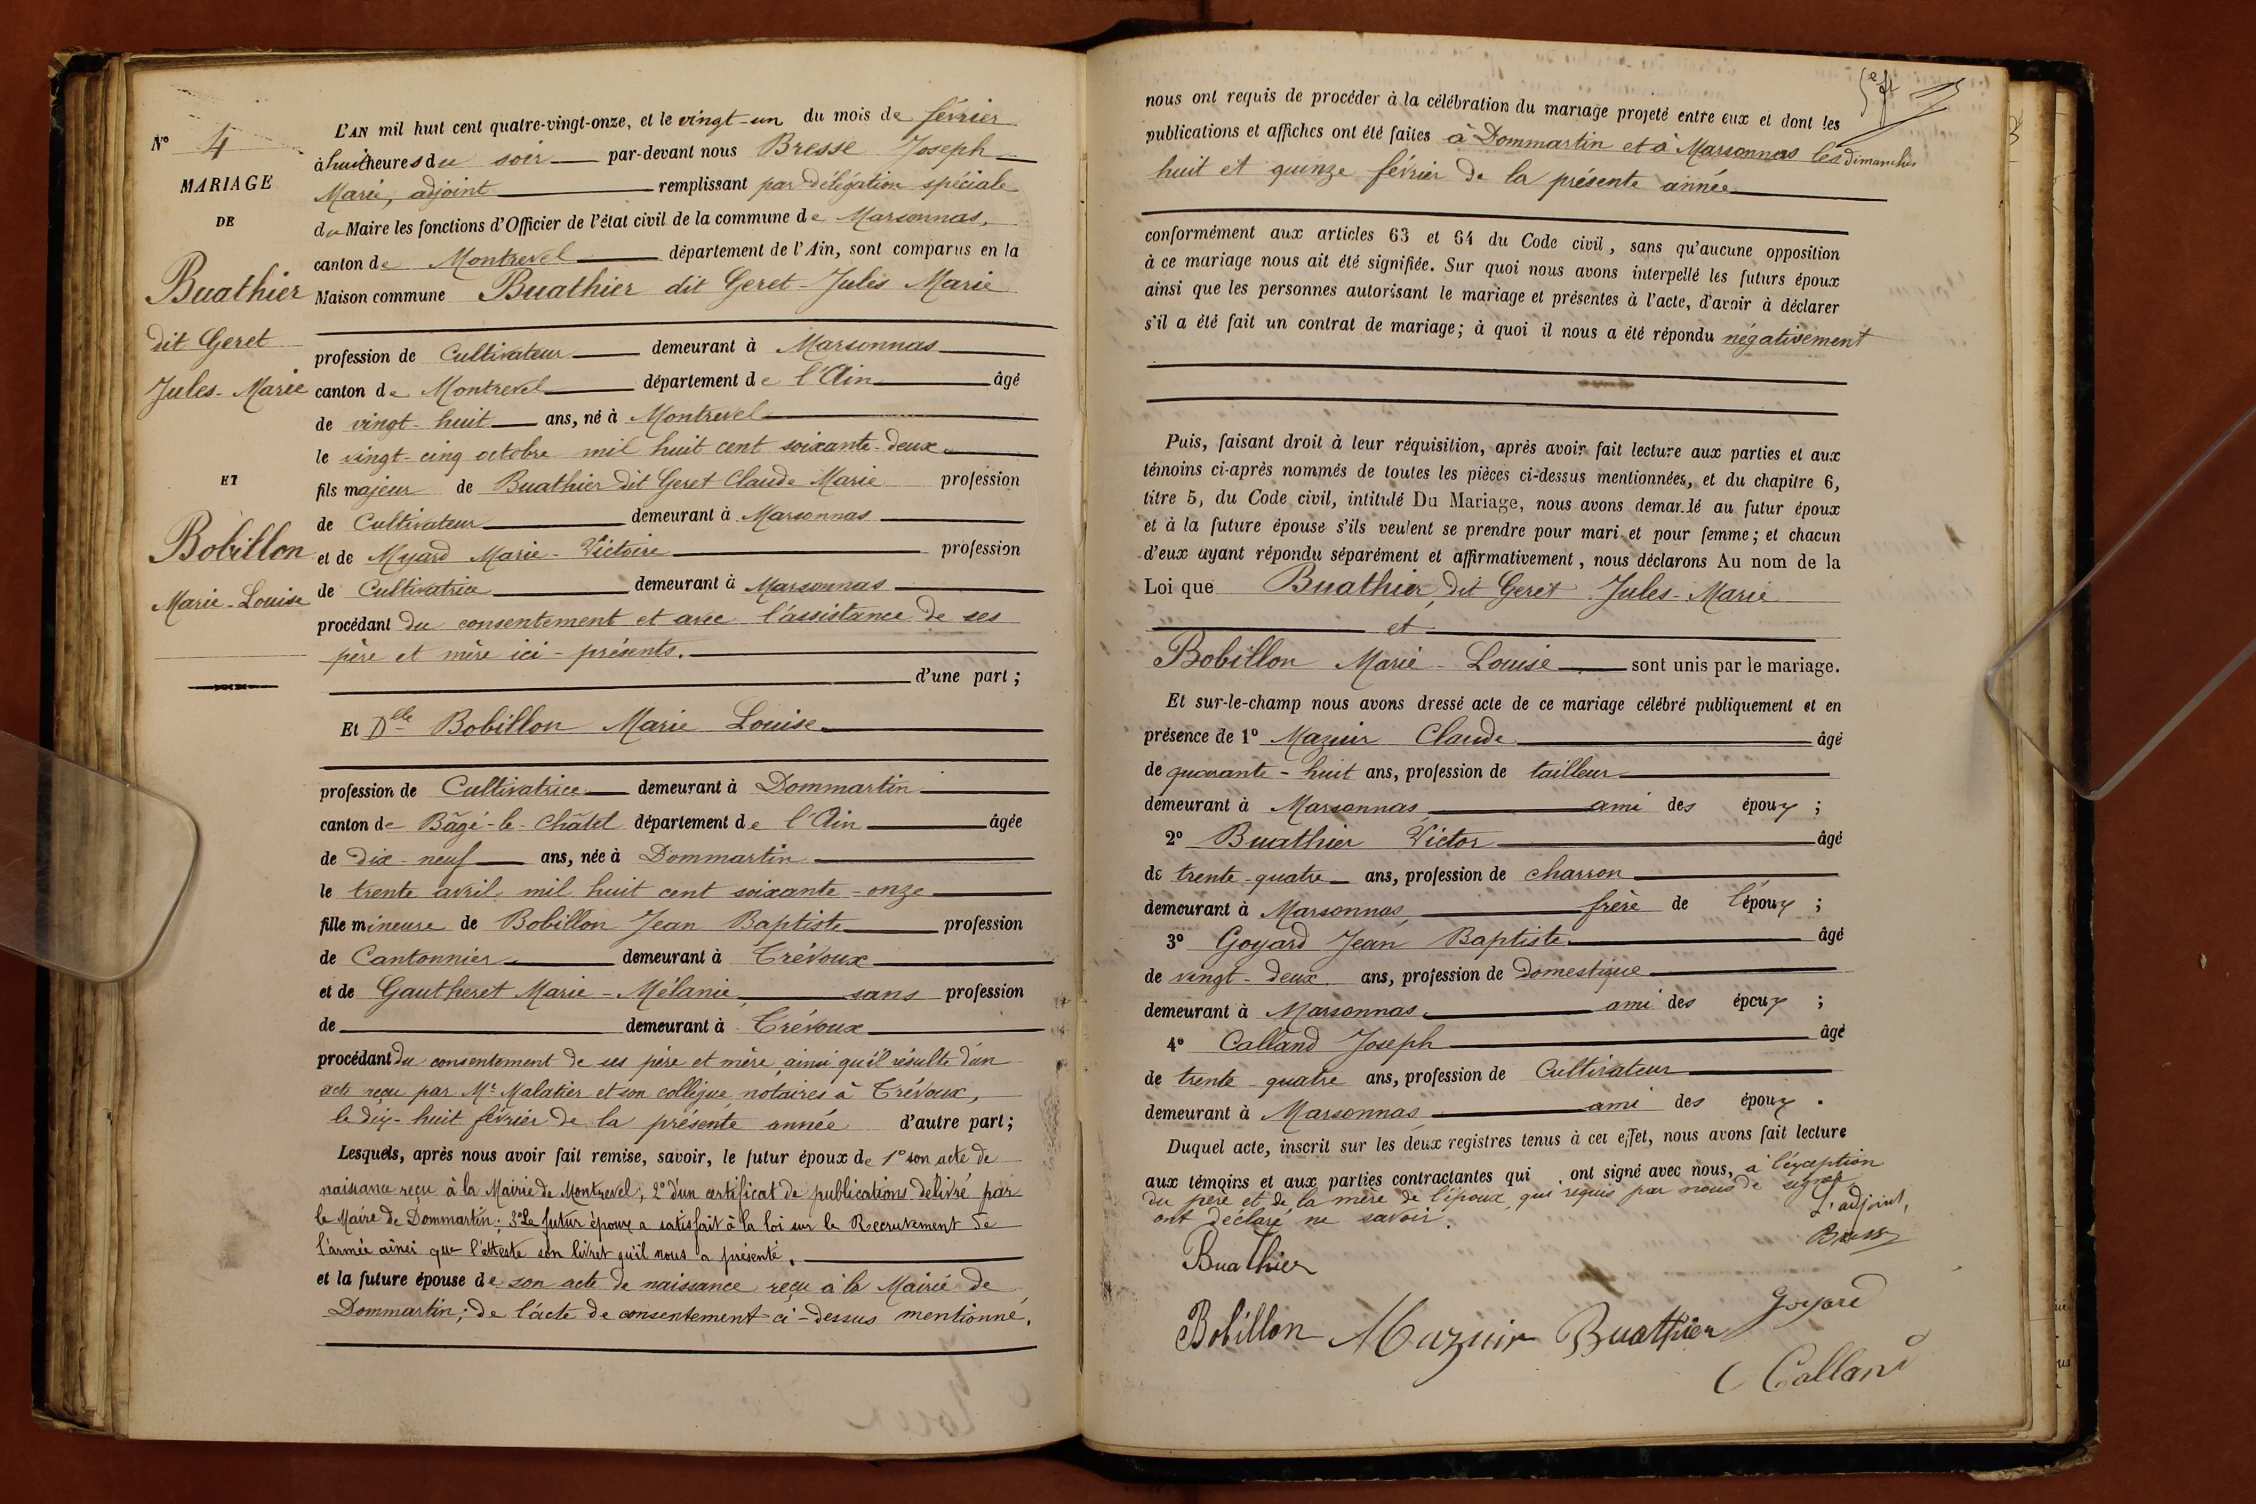 N° 4
MARIAGE
DE
Buathier
dit Geret
Jules-Marie
ET
Bobillon
Marie-Louise
L'AN mil huit cent quatre-vingt-onze, et le vingt-un du mois de février
à huit heures du soir par-devant nous Bresse Joseph
Marie, adjoint remplissant par délégation spéciale
du Maire les fonctions d'Officier de l'état civil de la commune de Marsonnas,
canton de Montrevel département de l'Ain, sont comparus en la
Maison commune Buathier dit Geret-Jules Marie
profession de Cultivateur demeurant à Marsonnas
canton de Montrevel département de l'Ain âgé
de vingt-huit ans, né à Montrevel
le vingt-cinq octobre mil huit cent soixante-deux
fils majeur de Buathier dit Geret Claude Marie profession
de Cultivateur demeurant à Marsonnas
et de Myard Marie-Victoire profession
de Cultivatrice demeurant à Marsonnas
procédant du consentement et avec l'assistance de ses
père et mère ici-présents.
d'une part;
Et Dlle Bobillon Marie Louise
profession de Cultivatrice demeurant à Dommartin
canton de Bâgé-le-Châtel département de l'Ain âgée
de dix-neuf ans, née à Dommartin
le trente avril mil huit cent soixante-onze
fille mineure de Bobillon Jean Baptiste profession
de Cantonnier demeurant à Trévoux
et de Gautheret Marie-Mélanie, sans profession
de demeurant à Trévoux
procédant du consentement de ses père et mère ainsi qu'il résulte d'un
acte reçu par Me Malatier et son collègue, notaires à Trévoux,
le dix-huit février de la présente année d'autre part;
Lesquels, après nous avoir fait remise, savoir, le futur époux de 1° son acte de
naissance reçu à la Mairie de Montrevel; 2° d'un certificat de publications délivré par
le Maire de Dommartin; 3° Le futur époux a satisfait à la loi sur le Recrutement de
l'armée ainsi que l'atteste son livret qu'il nous a présenté.
et la future épouse de son acte de naissance reçu à la Mairie de
Dommartin; de l'acte de consentement ci-dessus mentionné.
nous ont requis de procéder à la célébration du mariage projeté entre eux et dont les
publications et affiches ont été faites à Dommartin et à Marsonnas les dimanches
huit et quinze février de la présente année
conformément aux articles 63 et 64 du Code civil, sans qu'aucune opposition
à ce mariage nous ait été signifiée. Sur quoi nous avons interpellé les futurs époux
ainsi que les personnes autorisant le mariage et présentes à l'acte, d'avoir à déclarer
s'il a été fait un contrat de mariage; à quoi il nous a été répondu négativement
Puis, faisant droit à leur réquisition, après avoir fait lecture aux parties et aux
témoins ci-après nommés de toutes les pièces ci-dessus mentionnées, et du chapitre 6,
titre 5, du Code civil, intitulé Du Mariage, nous avons demandé au futur époux
et à la future épouse s'ils veulent se prendre pour mari et pour femme; et chacun
d'eux ayant répondu séparément et affirmativement, nous déclarons Au nom de la
Loi que Buathier dit Geret Jules-Marie
et
Bobillon Marie-Louise sont unis par le mariage.
Et sur-le-champ nous avons dressé acte de ce mariage célébré publiquement et en
présence de 1° Mazuir Claude âgé
de quarante-huit ans, profession de tailleur
demeurant à Marsonnas, ami des époux;
2° Buathier Victor âgé
de trente-quatre ans, profession de charron
demeurant à Marsonnas, frère de l'époux;
3° Goyard Jean Baptiste âgé
de vingt-deux ans, profession de domestique
demeurant à Marsonnas, ami des époux;
4° Calland Joseph âgé
de trente-quatre ans, profession de Cultivateur
demeurant à Marsonnas ami des époux.
Duquel acte, inscrit sur les deux registres tenus à cet effet, nous avons fait lecture
aux témoins et aux parties contractantes qui ont signé avec nous, à l'exception
du père et de la mère de l'époux qui requis par nous de signer
ont déclaré ne savoir.
L'adjoint,
Bresse
Buathier
Bobillon Mazuir Buathier Goyard
Calland